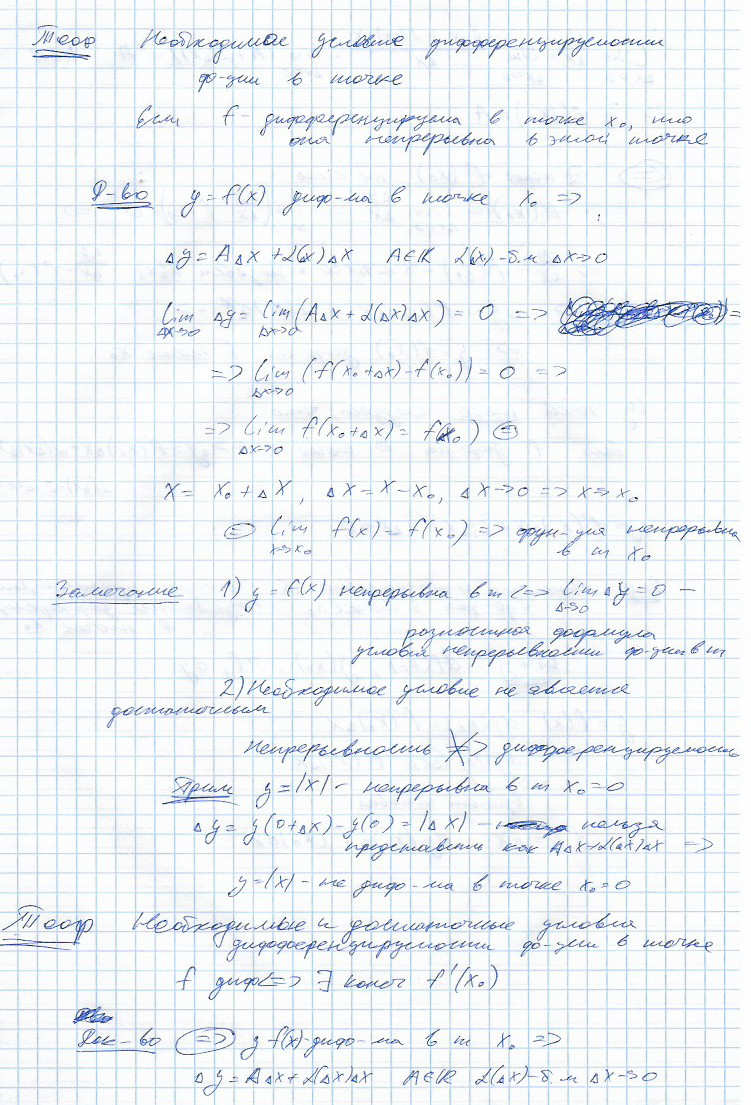 Теор Необходимое условие дифференцируемости
ф-ции в точке
Если f - дифференцируема в точке x₀, то
она непрерывна в этой точке
Д-во y = f(x) диф-ма в точке x₀ =>
Δy = AΔx + α(Δx)Δx A∈ℝ α(Δx) - б.м. Δx→0
lim Δy = lim (AΔx + α(Δx)Δx) = 0 =>
Δx→0 Δx→0
=> lim (f(x₀+Δx) - f(x₀)) = 0 =>
Δx→0
=> lim f(x₀+Δx) = f(x₀) (=)
Δx→0
x = x₀ + Δx, Δx = x - x₀, Δx→0 => x→x₀
(=) lim f(x) = f(x₀) => функ-ция непрерывна
x→x₀ в т x₀
Замечание 1) y = f(x) непрерывна в т <=> lim Δy = 0 -
Δ→0
разностная формула
условия непрерывности ф-ции в т
2) Необходимое условие не является
достаточным
Непрерывность ≠> дифференцируемость
Прим y = |x| - непрерывна в т x₀ = 0
Δy = y(0+Δx) - y(0) = |Δx| - нельзя
представить как AΔx + α(Δx)Δx =>
y = |x| - не диф-ма в точке x₀ = 0
Теор Необходимые и достаточные условия
дифференцируемости ф-ции в точке
f диф <=> ∃ конеч f'(x₀)
Док-во (=>) y f(x) - диф-ма в т x₀ =>
Δy = AΔx + α(Δx)Δx A∈ℝ α(Δx) - б.м Δx→0